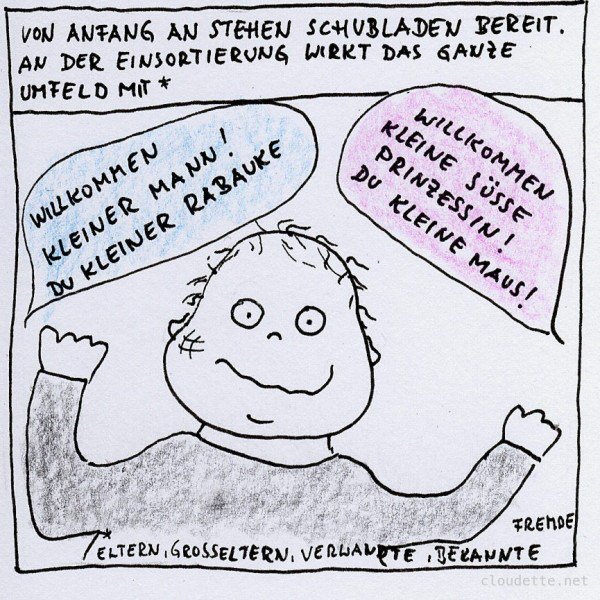 VON ANFANG AN STEHEN SCHUBLADEN BEREIT.
AN DER EINSORTIERUNG WIRKT DAS GANZE
UMFELD MIT *
WILLKOMMEN
KLEINER MANN!
DU KLEINER RABAUKE
WILLKOMMEN
KLEINE SÜSSE
PRINZESSIN!
DU KLEINE MAUS!
FREMDE
* ELTERN, GROSSELTERN, VERWANDTE, BEKANNTE
cloudette.net